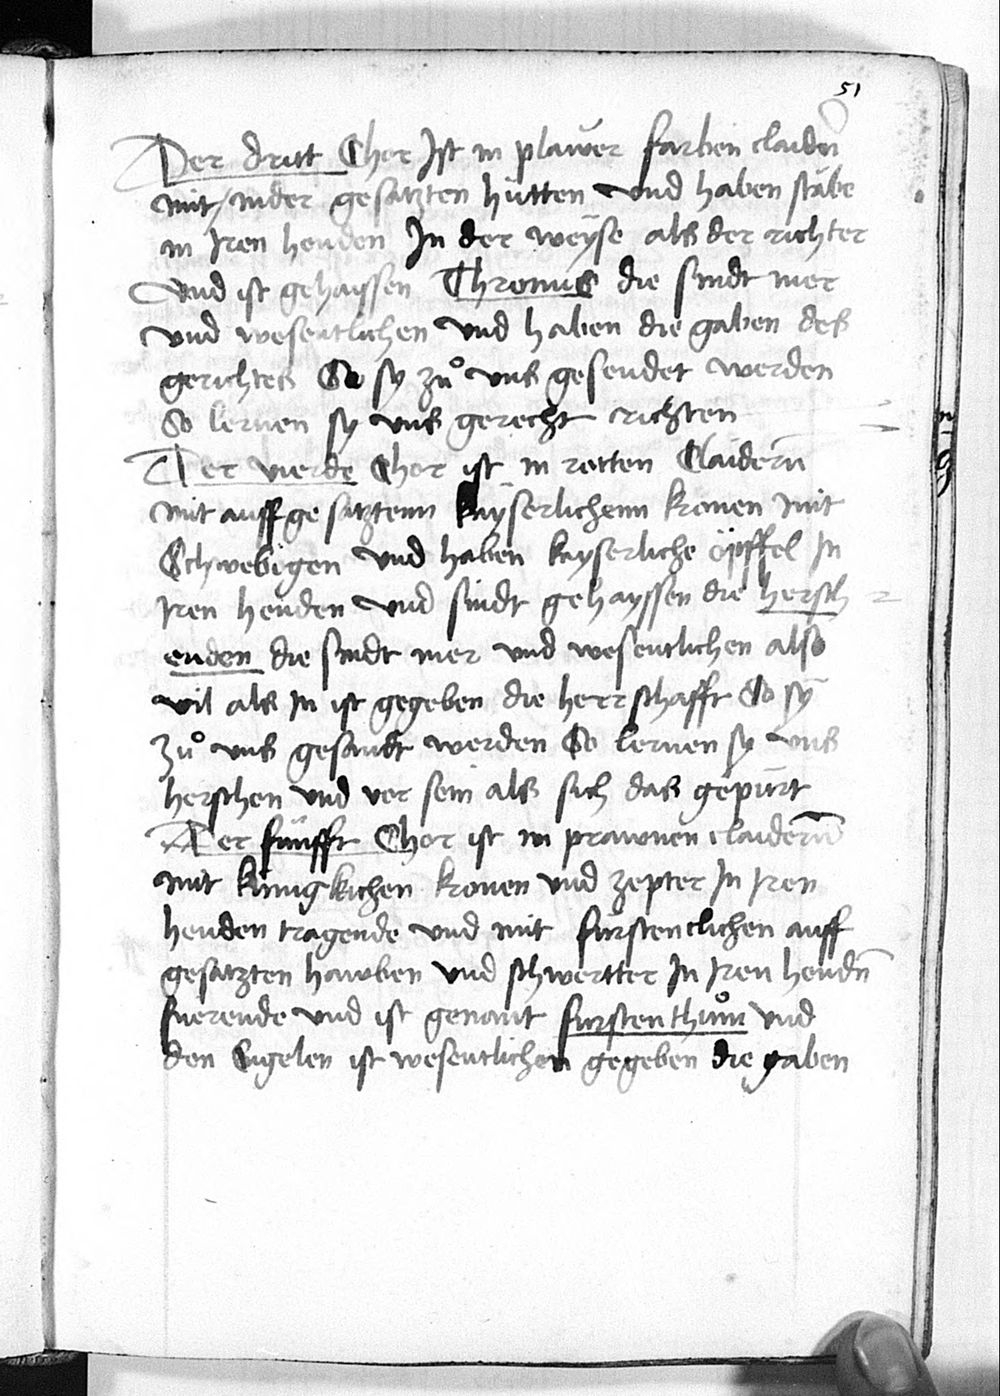 51
Der dritt Chor Ist in plawer farben claidn
mit nider gesatzten hütten und haben stäbe
in Iren henden In der weyse als der richter
Und ist gehayssen Thronus die sindt mer
und wesentlichen und haben die gaben des
gerichtes So sy zů uns gesendet werden
So lernen sy uns gerecht richten
Der vierde Chor ist in rotten Claidern̄
mit auffgesatztenn kayserlichenn kronen mit
Schwebögen und haben kayserliche öpffel In
Iren henden und sindt gehayssen die hersch
enden die sindt mer und wesentlichen also
vil als In ist gegeben die herrschafft So sy
zů uns gesandt werden So lernen sy uns
herschen und vor sein als sich das gepürt
Der fünfft Chor ist in prawnen claidern̄
mit künigklichen kronen und zepter In Iren
henden tragende und mit fürstenclichen auff
gesatzten hawben und schwertter In Iren hendn̄
fuerende und ist genant furstenthům und
den Engelen ist wesentlichen gegeben die gaben